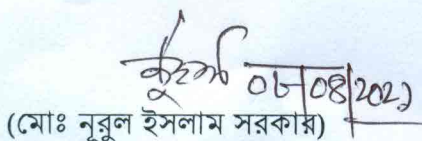 ০৮/০৪/২০২১
(মোঃ নূরুল ইসলাম সরকার)